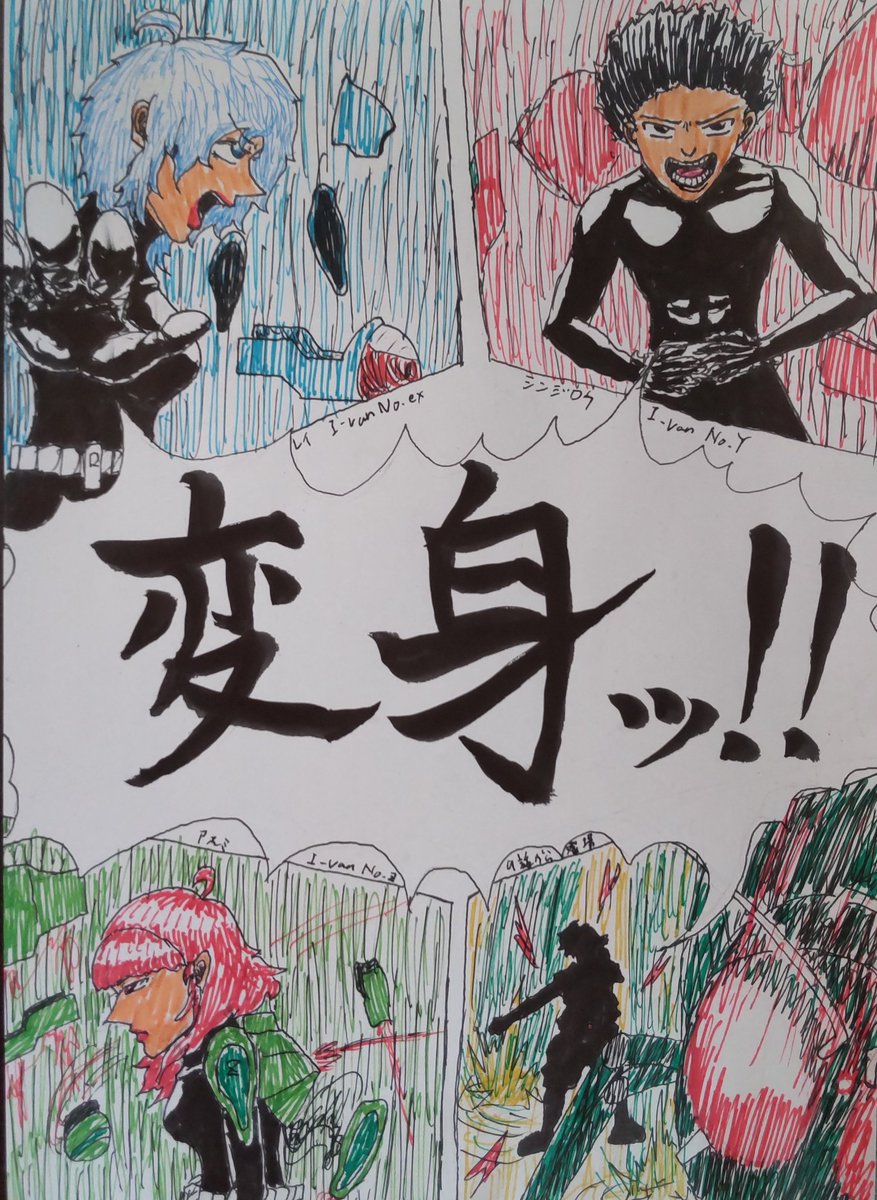 レイ I-van No.ex
シンジロウ
I-van No.Y
変身ッ!!
アスミ
I-van No.z
R